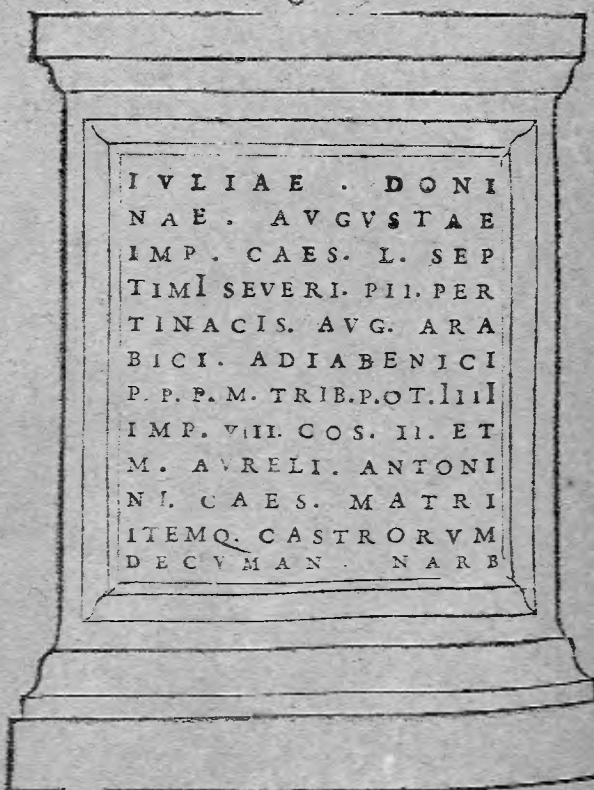 IVLIAE . DONI
NAE . AVGVSTAE
IMP . CAES. L. SEP
TIMI SEVERI. PII. PER
TINACIS. AVG. ARA
BICI. ADIABENICI
P. P. P. M. TRIB.P.OT.IIII
IMP. VIII. COS. II. ET
M. AVRELI. ANTONI
NI. CAES. MATRI
ITEMQ. CASTRORVM
DECVMAN . NARB